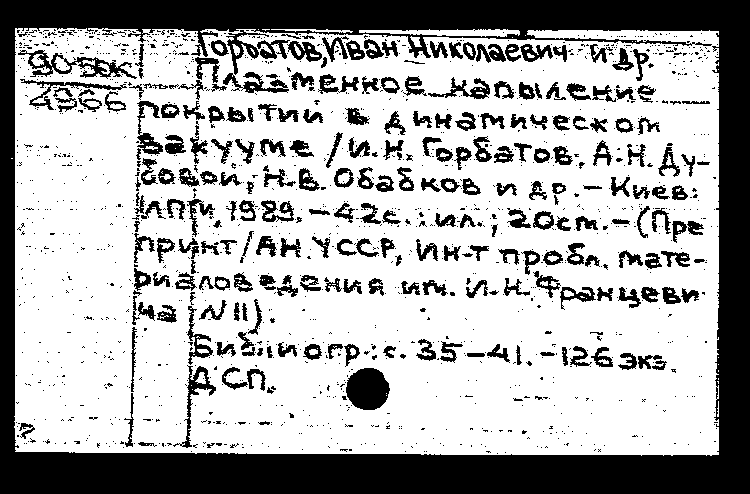 Горбатов, Иван Николаевич и др.
90-5ДК
4966
Плазменное напыление
покрытий в динамическом
вакууме / И.Н. Горбатов, А.Н. Ду-
бовой, Н.В. Обабков и др. – Киев:
ИПМ, 1989. – 42с.: ил.; 20cm. – (Пре
принт / АН УССР, Ин-т пробл. мате-
риаловедения им. И.Н. Францеви
ча N 11).
Библиогр.: с. 35–41. – 126 экз.
ДСП.